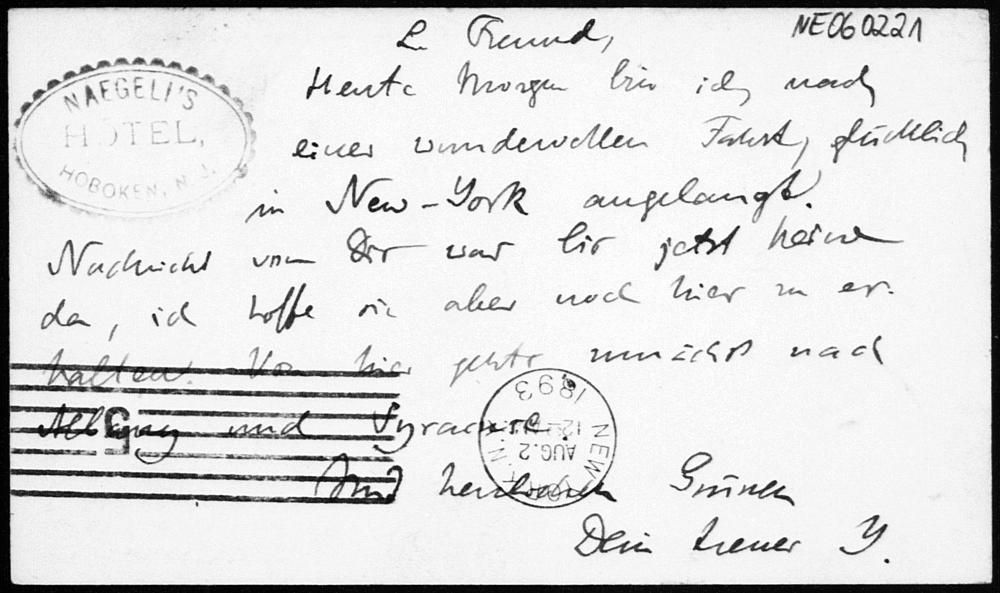 NE060221
L. Freund,
Heute Morgen bin ich nach
einer wundervollen Fahrt, glücklich
in New-York angelangt.
Nachricht von Dir war bis jetzt keine
da, ich hoffe sie aber noch hier zu er-
halten. Von hier gehts zunächst nach
Albany und Syracuse.
Mit herzlichen Grüssen
Dein treuer Y.
NAEGELI'S
HOTEL,
HOBOKEN, N. J.
NEW YORK, N.Y.
AUG. 2
12
1893
5